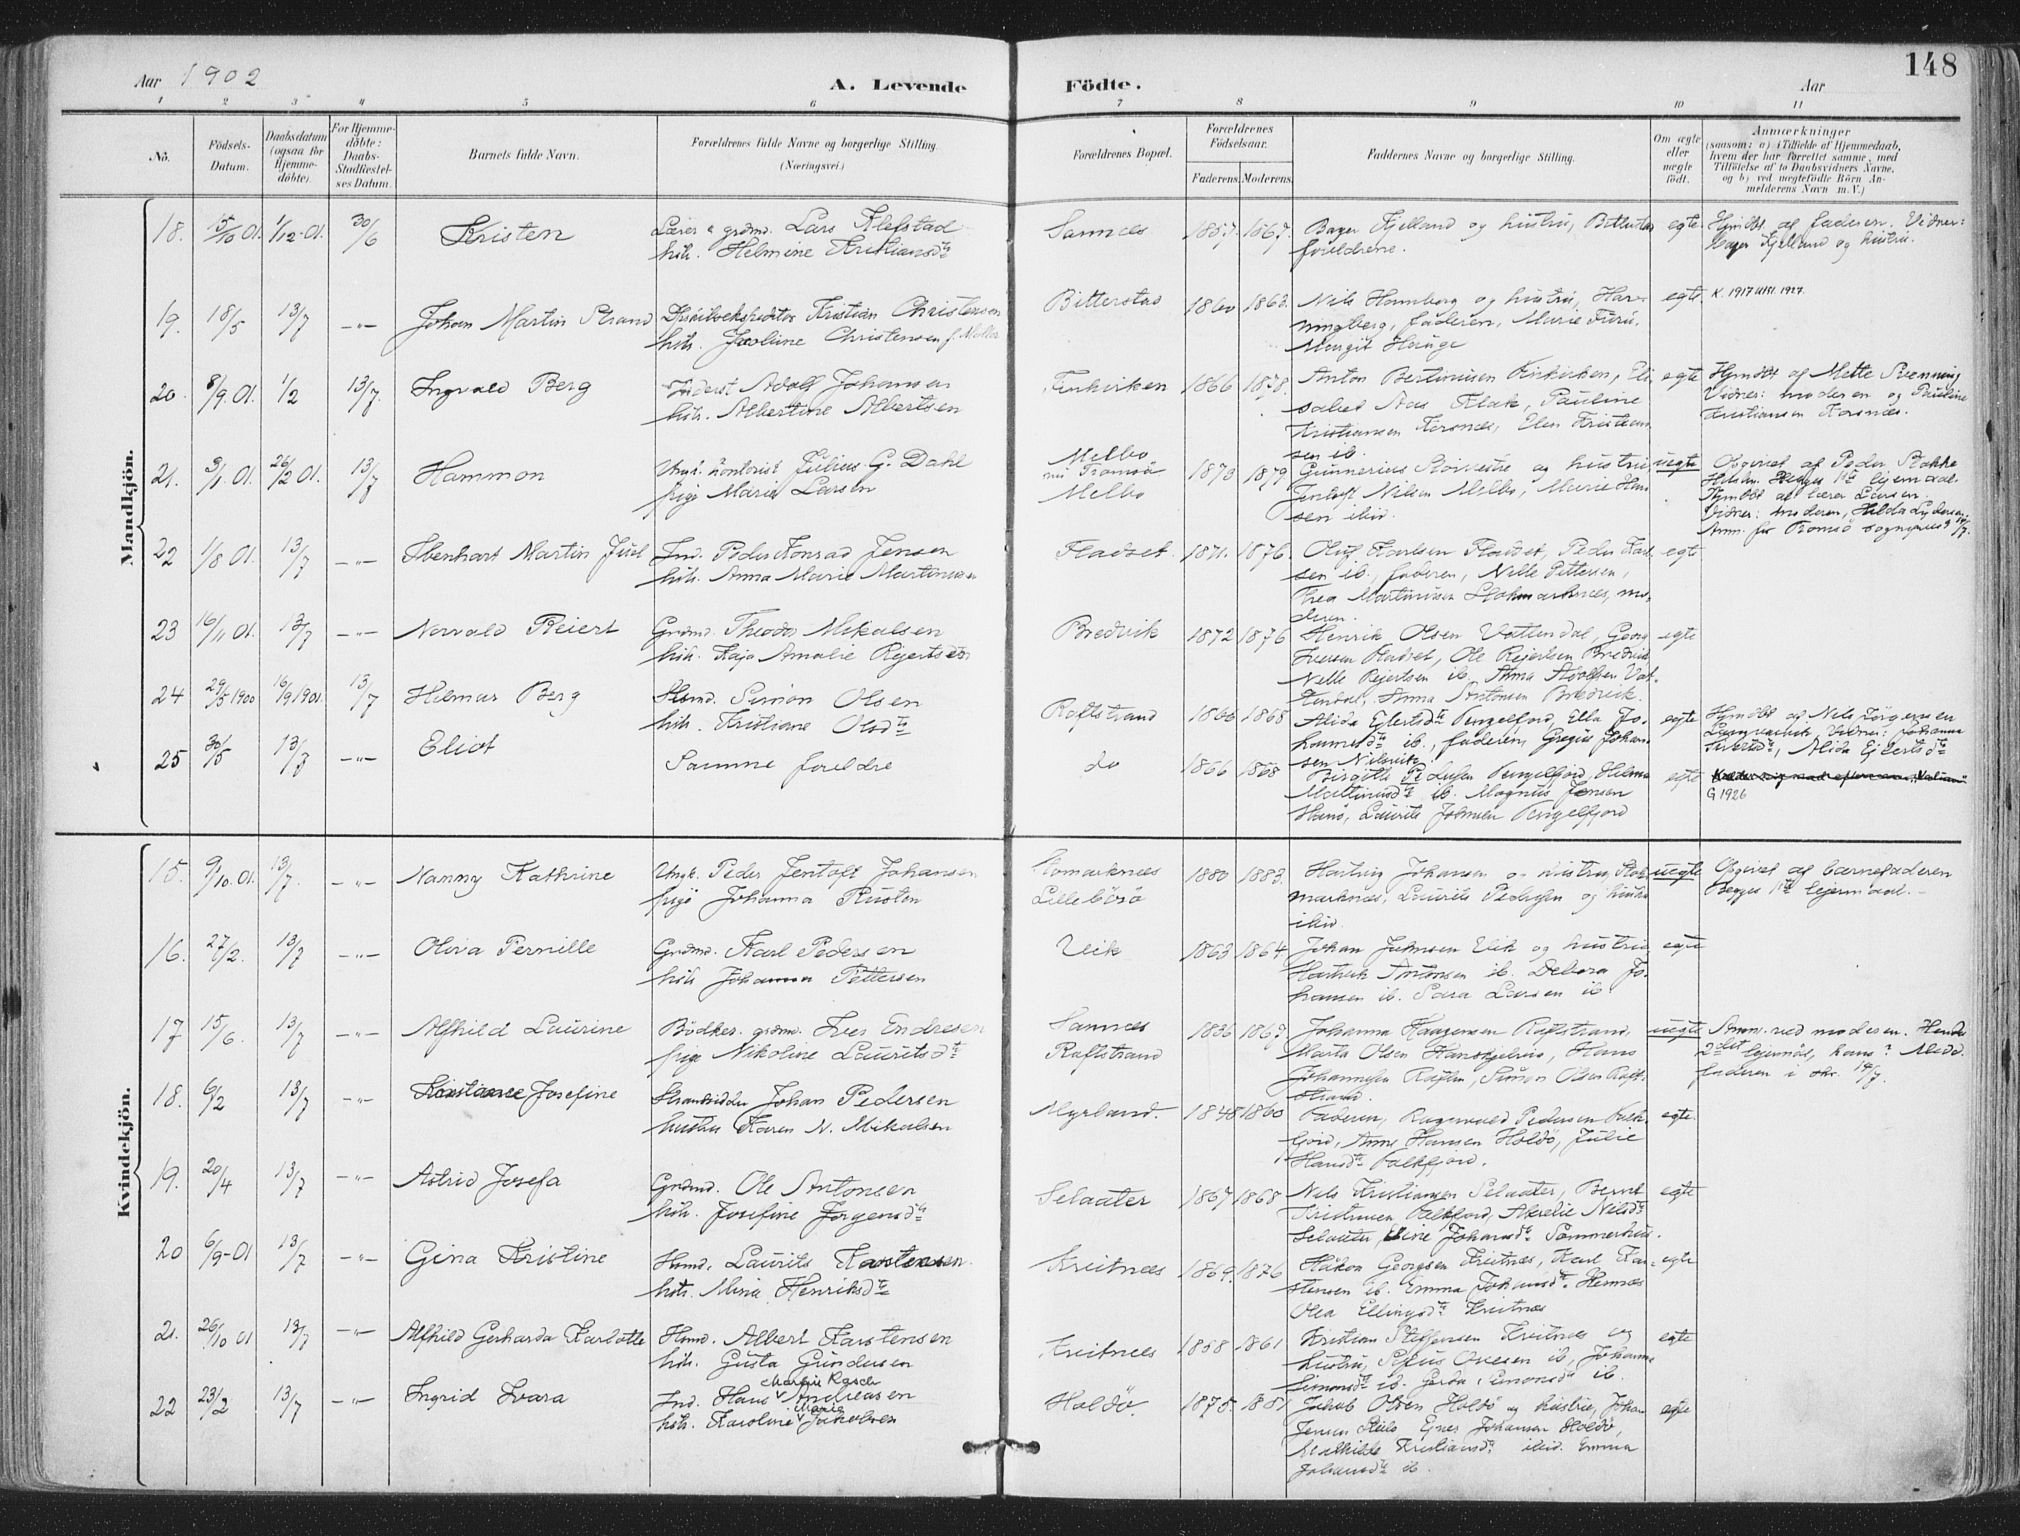 Aar 1902
A. Levende
Födte.
Aar
148
1 2 3 4 5 6 7 8 9 10 11
No.
Födsels-Datum.
Daabsdatum (ogsaa for Hjemme-döbte).
For Hjemme-döbte: Daabs-Stadfæstel-ses Datum.
Barnets fulde Navn.
Forældrenes fulde Navne og borgerlige Stilling. (Næringsvei.)
Forældrenes Bopæl.
Forældrenes Födselsaar.
Faderens. Moderens.
Faddernes Navne og borgerlige Stilling.
Om ægte eller uægte födt.
Anmærkninger
(saasom: a) i Tilfælde af Hjemmedaab, hvem der har forrettet samme, med Tilföielse af to Daabsvidners Navne, og b) ved uægtefödte Börn An-melderens Navn m. V.)
Mandkjön.
18. 5/10 01. 1/12-01. 30/6 Kristen
Lærer & grdmd. Lars Klefstad
hstr. Helmine Kristiansdtr
Sannes 1857. 1867.
Bager Kjelland og hustru, Bitterstad
foreldrene.
egte
Hjmdbt af faderen. Vidner:
Bager Kjelland og hustru.
19. 18/5 13/7 -"- Johan Martin Strand
Kristian Christensen
hstr. Christensen f. Möller
Bitterstad 1860 1863.
Nils Hamberg og hustru, Har-
ningberg, faderen, Marie Furu,
Margit Hauge
egte
K. 1917 1927.
20. 8/9.01. 1/2 13/7. Ingvald Berg
Inderst Adolf Johansen
hstr. Albertine Albertsen
1866 1878.
Anton Bertinusen Kirkviken, Eli-
sabet Aas Flak, Pauline
Kristiansen Korsnes, Elen Kristian-
sen ib.
egte
Hjmdbt af Mette Svenning
Vidner: moderen og Pauline
Kristiansen Korsnes.
21. 3/1 01. 26/2 01. 13/7 Hammon
Ungk. kontorist Julius G. Dahl
pige Marie Larsen
Melbo
nu Tromsö
Melbo
1873 1879
Gunnerius og hustru
Jentoft Nilsen Melbo, Marie Han-
sen ibid.
uegte
Opgivet af Peder Stokke
Begges 1ste lejermaal.
Hjmdbt af lærer Larsen.
Vidner: moderen, Hilda Lydersen
Anm. for Tromsö sogneprest
22 1/8 01. 13/7 -"- Ebenhart Martin Juel
Ind. Peder Konrad Jensen
hstr. Anna Marie Martinsen
Fladset. 1871. 1876.
Oluf Karlsen Fladset, Peder Karl-
sen ib., faderen, Nelle Pettersen,
Thea Martinsen Stokmarknes, mo-
deren.
egte
23 16/11 01. 13/7 -"- Norvald Reiert
Grdmd. Theodor Mikalsen
hstr. Kaja Amalie Rejertsdtr
Bredvik 1872 1876
Henrik Olsen Vattendal, Georg
Iversen Fladset, Ole Rejertsen Bredvik
Nelle Rejertsen ib. Anna Adolfsen Vat-
tendal, Anna Antonsen Bredvik.
egte
24 29/5 1900 16/9 1901. 13/7 Helmar Berg
Simon Olsen
hstr. Kristiane Olsdtr
Raftstrand 1866 1868
Alida Ejlertsdtr Tengelfjord, Ella Jo-
hannesdtr ib., faderen, Gregius Johan-
sen Nilsvik.
egte
Hjmdbt af Nils Jörgensen
Vidner: Johanna
Sivertsdtr, Alida Ejlertsdtr
25 30/5 13/7 -"- Eliot
Samme foreldre
do 1866 1868
Birgitte Pedersen Tengelfjord, Helma
Martinusdtr ib. Magnus Jensen
Hanö, Laurits Johnsen Tengelfjord
egte
G 1926
Kvindekjön.
15. 9/10. 01. 13/7. -"- Nanny Kathrine
Ungk. Peder Jentoft Johansen
pige Johanna Rusten
Stomarknes
Lillebörö
1880 1883.
Hartvig Johansen og hustru, Stok-
marknes, Laurits Pedersen og hustru
ibid.
uegte
Opgivet af barnefaderen
Begges 1ste lejermaal.
16. 27/2. 13/7 -"- Oliva Pernille
Grdmd. Karl Pedersen
hstr Johanna Pettersen
Vik 1863 1864
Johan Johnsen Vik og hustru
Hartvik Antonsen ib. Debora Jo-
hansen ib. Sara Larsen ib
egte
17 15/6. 13/7 -"- Alfhild Laurine
Bödker. grdmd. Iver Endresen
pige Nikoline Lauritsdtr
Sannes
Raftstrand
1836 1867.
Johanna Kaagensen Raftstrand
Marta Olsen Hanskjelvik, Hans
Johannesen Raften, Simon Olsen Raft-
strand.
uegte
Anm. ved moderen. Hendes
2det lejermål, hans? Medd.
faderen i skr. 14/7.
18. 6/2 13/7 -"- Kristiane Josefine
Strandsidder Johan Pedersen
hustru Karen N. Mikalsen
Myrland. 1848 1860
Faderen, Ragnvald Pedersen Falk-
fjord, Anne Hansen Holdö, Julie
Hansdtr Falkfjord.
egte
19. 20/4 13/7 -"- Astrid Josefa
Grdmd. Ole Antonsen
hstr. Josefine Jörgensdtr
Selaater 1867 1868
Nils Kristiansen Selaater, Bernt
Kristiansen Falkfjord, Amelie Nilsdtr
Selaater, Eline Johansdtr Sommerhus.
egte
20 6/9-01 13/7 -"- Gina Kristine
Husmd. Laurits Karstensen.
hstr. Mina Henriksdtr
Kreitnes 1869. 1876
Håkon Georgsen Kreitnes, Karl Kar-
stensen ib. Emma Johansdtr. Hennes
Olea Ellingsdtr Kreitnes
egte
21. 26/10 01 13/7 -"- Alfhild Gerharda Karlotte
Husmd. Albert Karstensen
hstr. Gusta Gundersen
Kreitnes 1858 1861
Kristian Steffensen Kreitnes og
hustru, Sefius Ovesen ib, Johanna
Simonsdtr ib. Gerda Simonsdtr ib.
egte
22 23/2 13/7 -"- Ingrid Svara
Ind. Hans Andreasen
hstr. Karoline Marie Jakobsen
Holdö. 1875. 1881
Jakob Olsen Holdö og hustru, Johan
Jensen Ejner Johansen Holdö,
Mathilde Kristiansdtr ibid. Emma
Johansdtr ib.
egte